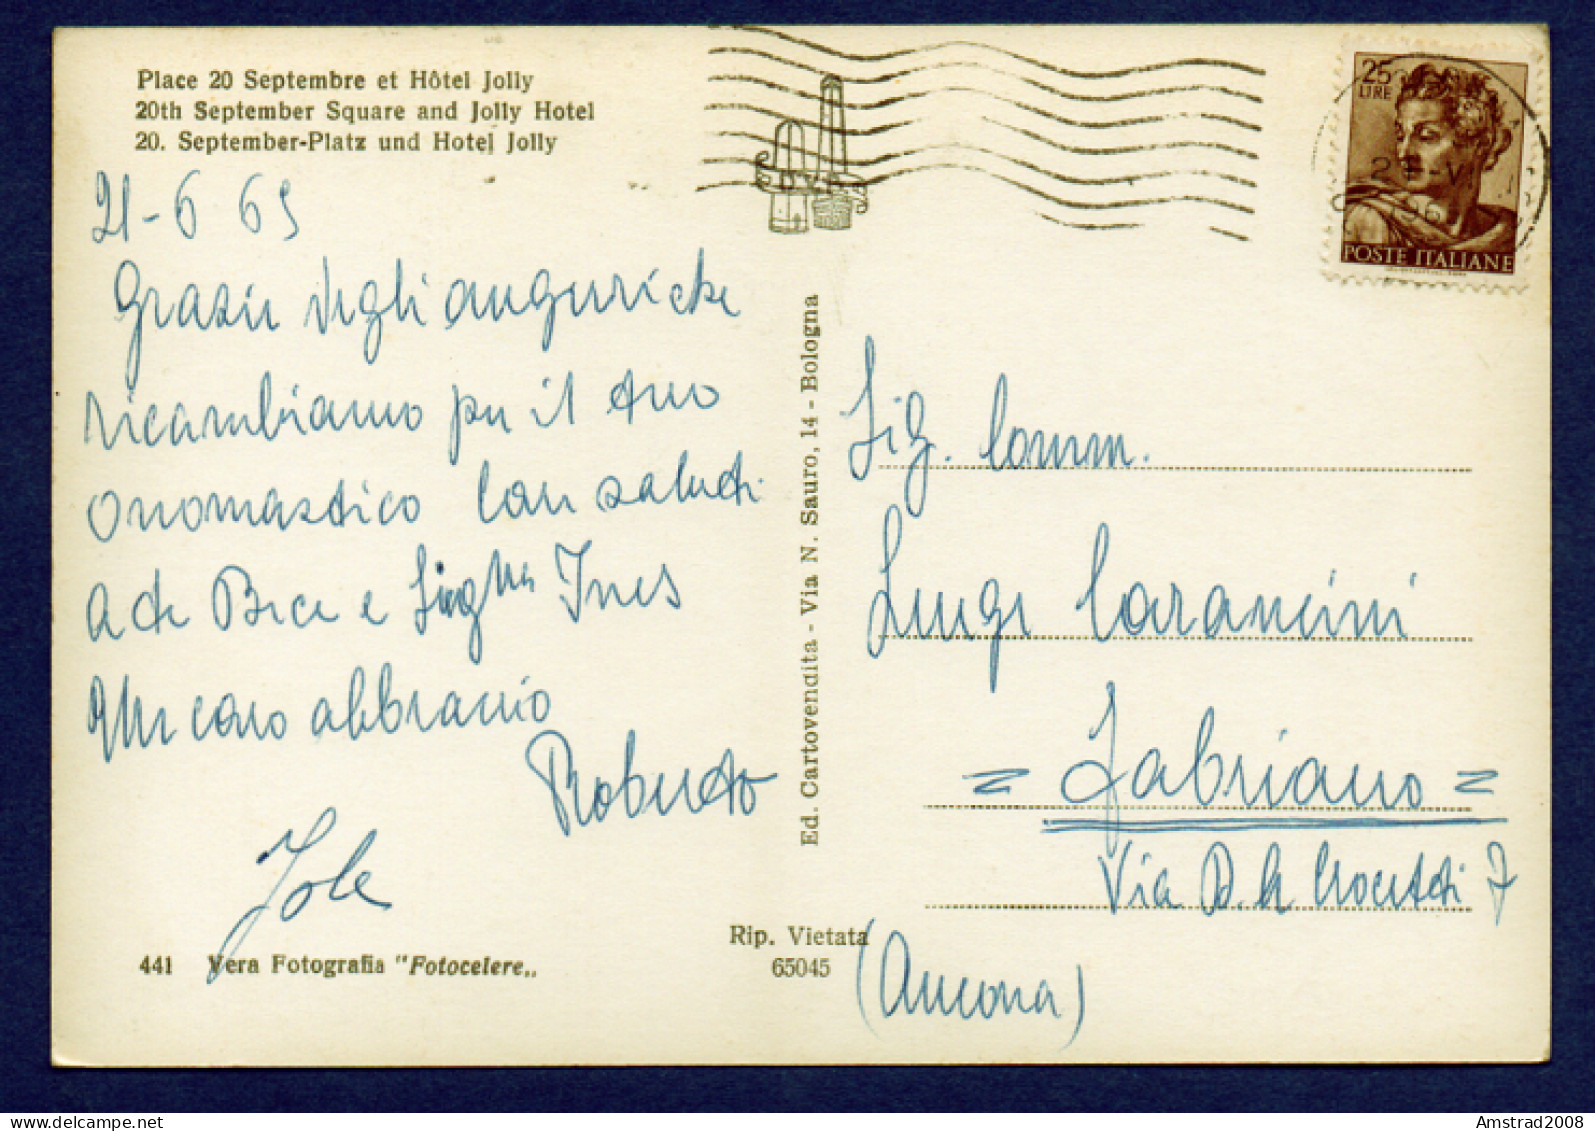 Place 20 Septembre et Hôtel Jolly
20th September Square and Jolly Hotel
20. September-Platz und Hotel Jolly
21-6 65
Grazie degli auguri che
ricambiamo per il tuo
onomastico con saluti
a te Bice e Sig.na Ines
Un caro abbraccio
Roberto
Jole
441 Vera Fotografia "Fotocelere„
Ed. Cartovendita - Via N. Sauro, 14 - Bologna
Rip. Vietata
65045
25
LIRE
POSTE ITALIANE
Sig. Comm.
Luigi Carancini
= Fabriano =
Via B. Crocetti 7
(Ancona)
www.delcampe.net
Amstrad2008